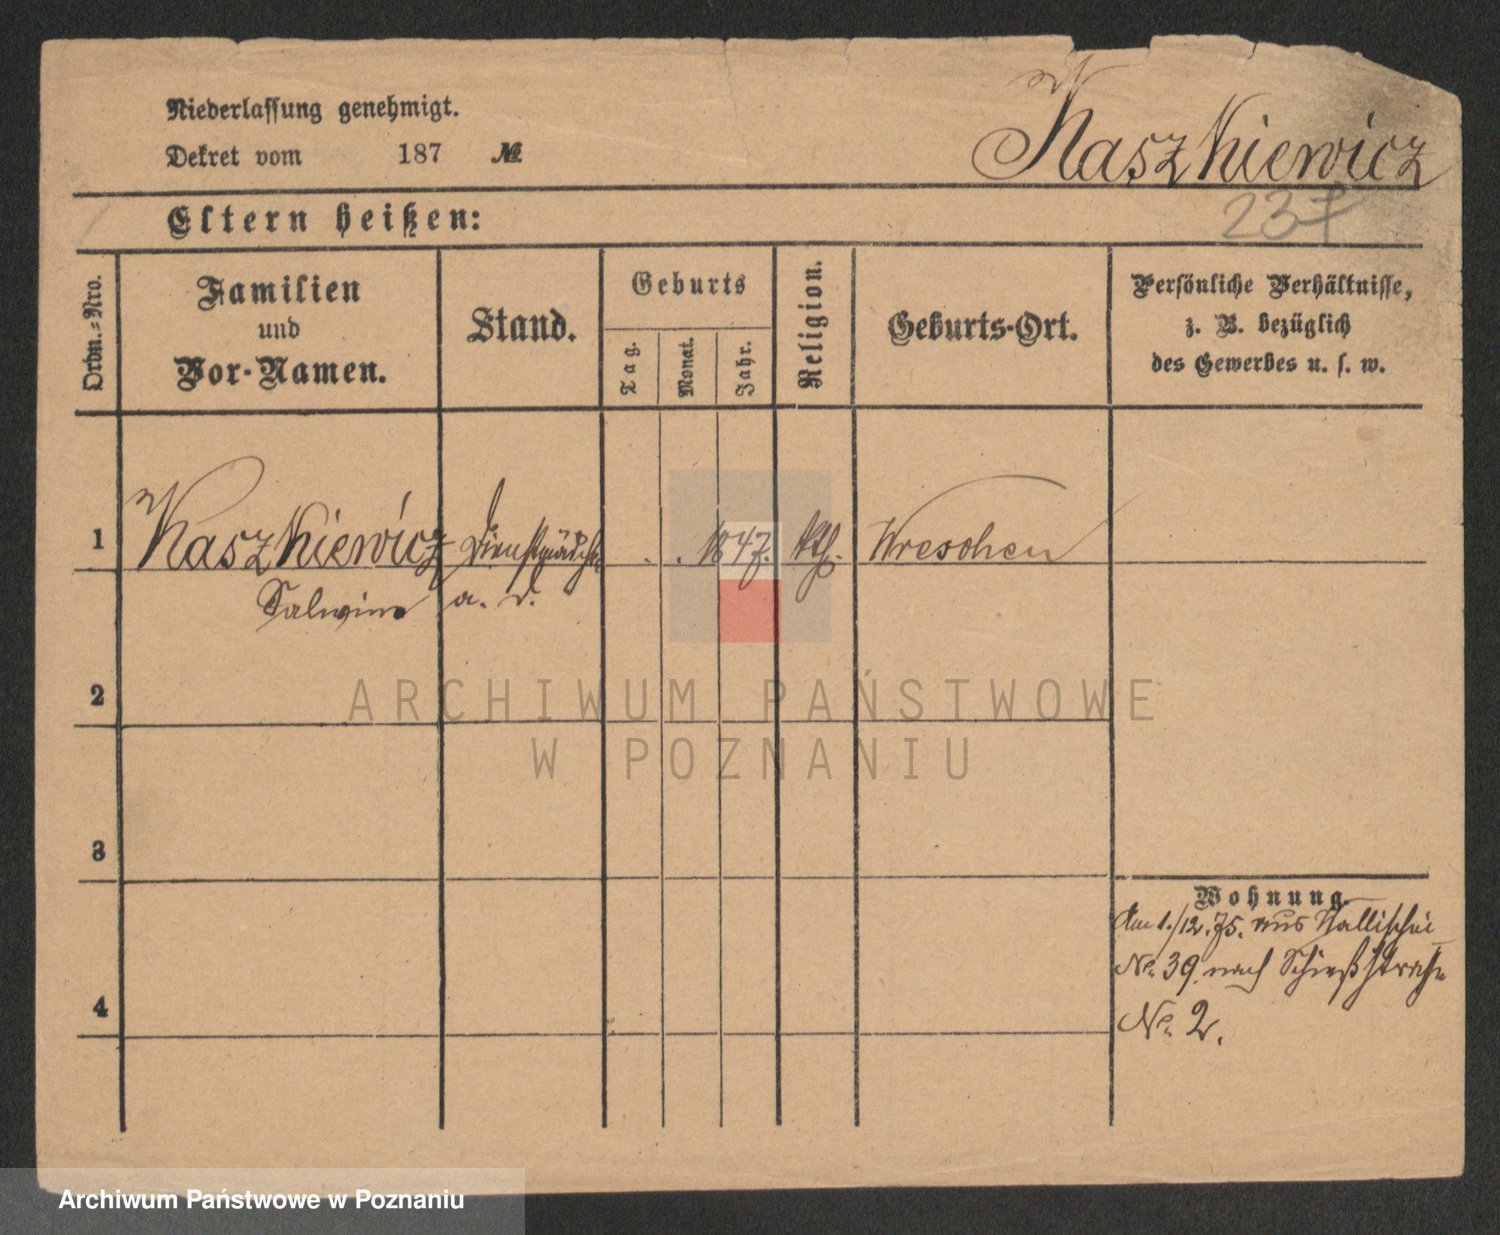 Niederlassung genehmigt.
Dekret vom 187 №
Kaszkiewicz
237
Eltern heißen:
Ordn.-Nro.
Familien
und
Vor-Namen.
Stand.
Geburts
Tag.
Monat.
Jahr.
Religion.
Geburts-Ort.
Persönliche Verhältnisse,
z. B. bezüglich
des Gewerbes u. s. w.
1 Kaszkiewicz Dienstmädchen . . 1847. kth. Wreschen
Salwina a. D.
2
3
4
Wohnung.
Am 1./12.75. aus Wallischei
No. 39. nach Schießstraße
No. 2.
ARCHIWUM PAŃSTWOWE
W POZNANIU
Archiwum Państwowe w Poznaniu